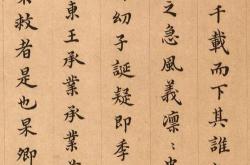 千載而下其誰
之急風義凛〻
幼子誕疑即季
東王承業承業
救者是也杲卿